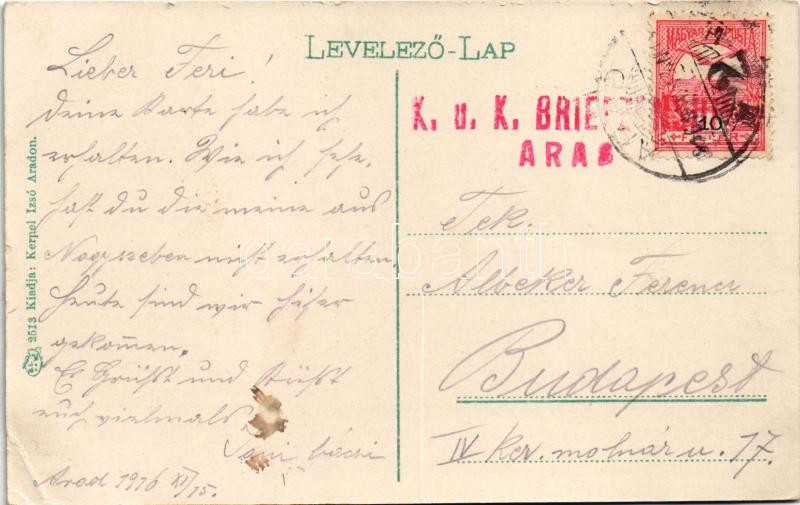 LEVELEZŐ-LAP
Lieber Feri!
deine Karte habe ich
erhalten. Wie ich sehe,
hast du die meine aus
Nagyszeben nicht erhalten.
Heute sind wir hieher
gekommen.
Es Grüßt und Küßt
euch vielmals
Toni bácsi
Arad 1916 XI/15.
2513 Kiadja: Kerpel Izsó Aradon.
K. u. K. BRIEF
ARAD
MAGYAR POSTA
10
Tek.
Albeker Ferenc
Budapest
IV Ker. molnár u. 17.
darabanth